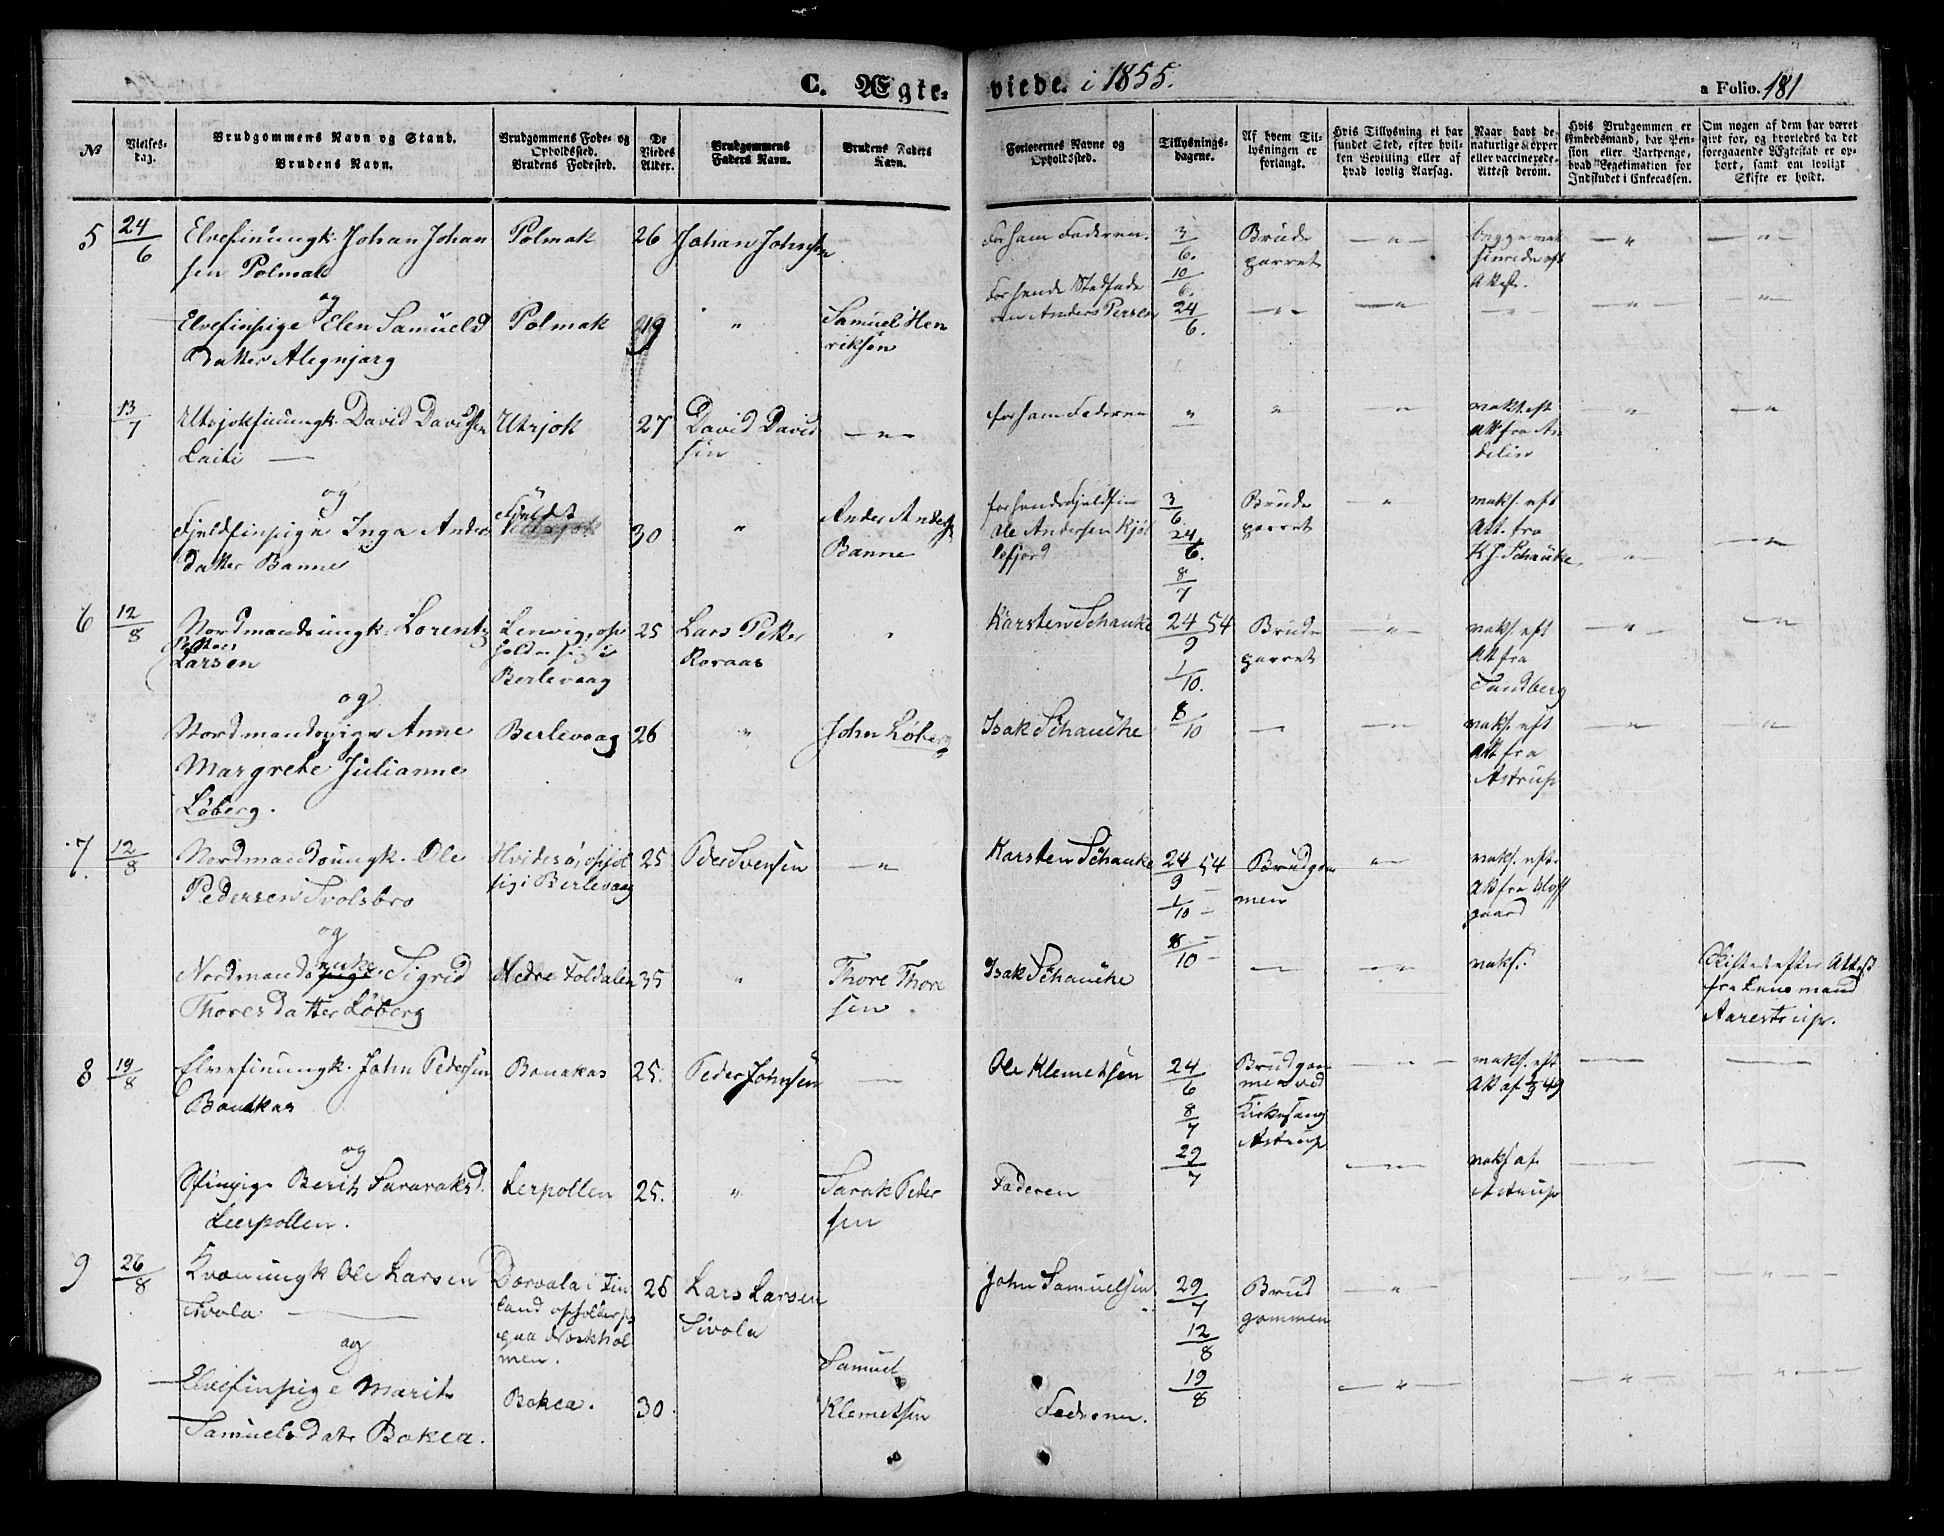 C. Ægte-
viede. i 1855.
a Folio. 181
No
Vielses-
dag.
Brudgommens Navn og Stand.
Brudens Navn.
Brudgommens Fode- og
Opholdssted.
Brudens Fodested.
De
Viedes
Alder.
Brudgommens
Faders Navn.
Brudens Faders
Navn.
Forlovernes Navne og
Opholdssted.
Tillysnings-
dagene.
Af hvem Til-
lysningen er
forlangt.
Hvis Tillysning ei har
fundet Sted, efter hvil-
ken Bevilling eller af
hvad lovlig Aarsag.
Naar havt de
naturlige Kopper
eller vaccinerede.
Attest derom.
Hvis Brudgommen er
Embedsmand, har Pen-
sion eller Vartpenge,
hvad Legitimation for
Indskudet i Enkecassen.
Om nogen af dem har været
givt før, og hvorledes da det
foregaaende Ægteskab er op-
hørt, samt om lovligt
Skifte er holdt.
5 24/6 Elvefinungk. Johan Johan
sen Polmak
Polmak 26 Johan Johnsen
For ham Faderen. 3/6. 10/6. 24/6.
Brude
parret
og
Elvefinpige Elen Samuelsd
Datter Alegnjarg
Polmak 29 " Samuel Hen
riksen
For hende Stedfade
ren Anders Persen
13/7 Utsjokfinungk. David Davidsen
Laiti
Utsjok 27 David David
sen
for ham Faderen " "
vaks. eft
Att fra An
delin
og
Fjeldfinpige Inga Anders
datter Banne
Fjeldet 30 " Anders Anders
Banne
for hende Fjeldfin
Ole Andersen Kjøl
lefjord
3/6. 24/6. 8/7
Brude
parret
vaks. eft
Att. fra
Schanke
6 12/8 Nordmandsungk. Lorentz
Petter
Larsen
Lenvig, op
holder sig i
Berlevaag
25 Lars Petter
Roraas
Karsten Schanke 24/9 54 1/10. 8/10
Brude
parret
vaks. eft
Att fra
Sandberg
og
Nordmandspige Anne
Margrete Julianne
Løberg.
Berlevaag 26 " John Løberg
Isak Schanche
vaks. eft
Att fra
Astrup
7. 12/8 Nordmandsungk. Ole
Pedersen Svolsbro
Hvidesø, ophol
sig i Berlevaag
25 Peder Svensen
Karsten Schanke 24/9 54 1/10 8/10
Brudgom
men
vaks. eft.
Att fra
gaard
og
Nordmandspige enke Sigrid
Thoresdatter Løberg
Nedre Foldalen 35 " Thore Thore
sen
Isak Schanche
vaks.
Skiftet efter Attest
fra Lensmand
Aarestrup.
8 19/8 Elvefinungk. John Pedersen
Bonakas
Bonakas 25. Peder Johnsen
Ole Klemetsen 24/6 8/7 29/7
Brudgom
men ved
Kirkesang
Astrup
vaks. eft
Att af 49
og
Sfinpige Berit Sararaksd.
Leerpollen.
Lerpollen 25. " Sarak Peder
sen
Faderen
vaks af
Astrup
9 26/8 Kvænungk Ole Larsen
Sivola
Dorvala i Fin
land opholder sig
paa Norskhol
men.
26 Lars Larsen
Sivola
John Samuelsen 29/7 12/8 19/8
Brud
gommen
og
Elvefinpige Marit
Samuelsdatr Bokca.
Bokca. 30. Samuel
Klemetsen
Faderen.